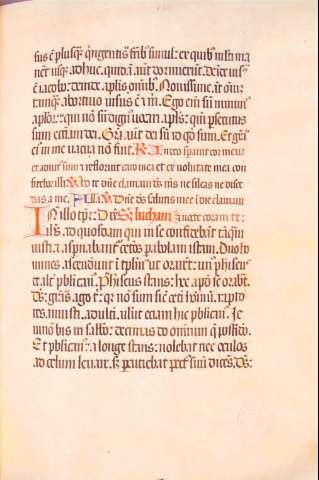 sus ē plusqȝ qngentis frīb simul: ex quib multi ma
nēt usqȝ adhuc, quidā aūt dormierūt. deīde uis'
ē iacobo: deinde aplis omībȝ. Nouissime āt omīū
tanqȝ abortiuo uisus ē & m. Ego eni sū minim'
aplor: qui nō sū dign' uocari apls: qm psecutus
sum ecciam dei. Grā aūt dei sū id qd sum. Et grā
ei in me uacua nō fuit. R In deo spauit cor meū
et adiut' sum & refloruit caro mea et ex uoluntate mea con
fitebor illi. V Ad te dne clamaui ds ms ne sileas ne disce
das a me. Alla V Dne ds salutis mee ī die clamaui
In illo tpr: D. ihs S lucham. coram te:
ad quosdam qui in se confidebāt tāqȝ
iusti & aspnabant ceteros pabolam istam. Duo ho
mines ascendūt ī tplum ut orarēt: un' phiseus
et alt' pblican'. Phiseus stans: hec apd se orabt.
Ds: grās ago t: qr nō sum sic ceti hoīum. rapto
res iniusti. adulti. uelut eciam hic pblican'. Je
iuno bis in sabbo: decimas do omnium q possideo.
Et pblican' a longe stans: nolebat nec oculos
ad celum leuare. sȝ percutiebat pect' suū dices. Ds: